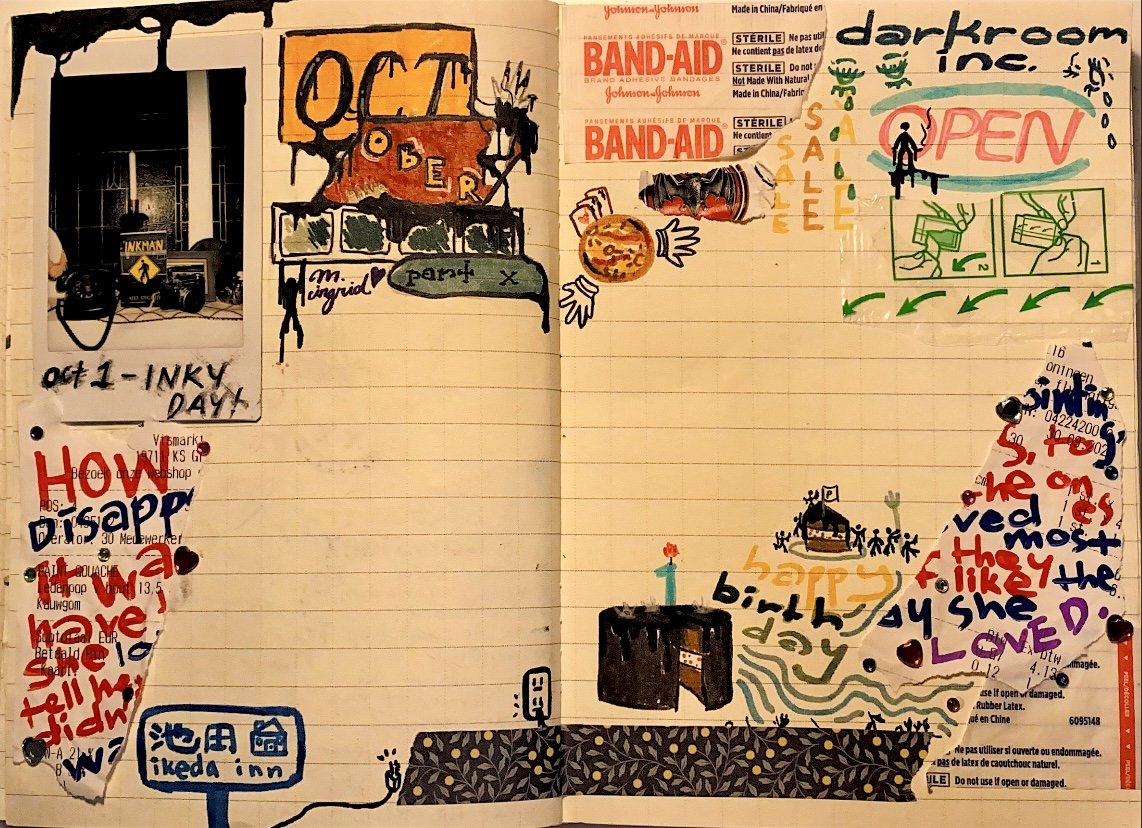 INKMAN
oct 1 - INKY
DAY!
OCT
OBER
m.
ingrid
part X
Vismarkt
Bezoek onze webshop
HOW
POS:
DISAPP
Operator: 30 Medewerker
it wa
PAINT GOUACHE
Ledenpop
hout 13,5
Kauwgom
have
Subtotaal EUR
she lo
Betaald Pin
Kaart:
tell he
didn'
wa
池田
ikeda inn
Johnson & Johnson
Made in China/Fabriqué en
PANSEMENTS ADHÉSIFS DE MARQUE
BAND-AID®
BRAND ADHESIVE BANDAGES
Johnson & Johnson
STÉRILE Ne pas util
Ne contient pas de latex de
STÉRILE Do not
Not Made With Natural
Made in China/Fabriq
PANSEMENTS ADHÉSIFS DE MARQUE
BAND-AID®
STÉRILE
Ne contient
SALE
SALE
SALE
darkroom
inc.
OPEN
2
1
P
1
happy
birthday
day
16
oningen
sintin
04224200
s, to
she on es
ved
most
they
f like the
ay she
LOVED.
4.13
0.12
mmagée.
use if open or damaged.
Rubber Latex.
qué en Chine
6095148
Ne pas utiliser si ouverte ou endommagée.
pas de latex de caoutchouc naturel.
ILE Do not use if open or damaged.
PEEL/DÉCOLLER